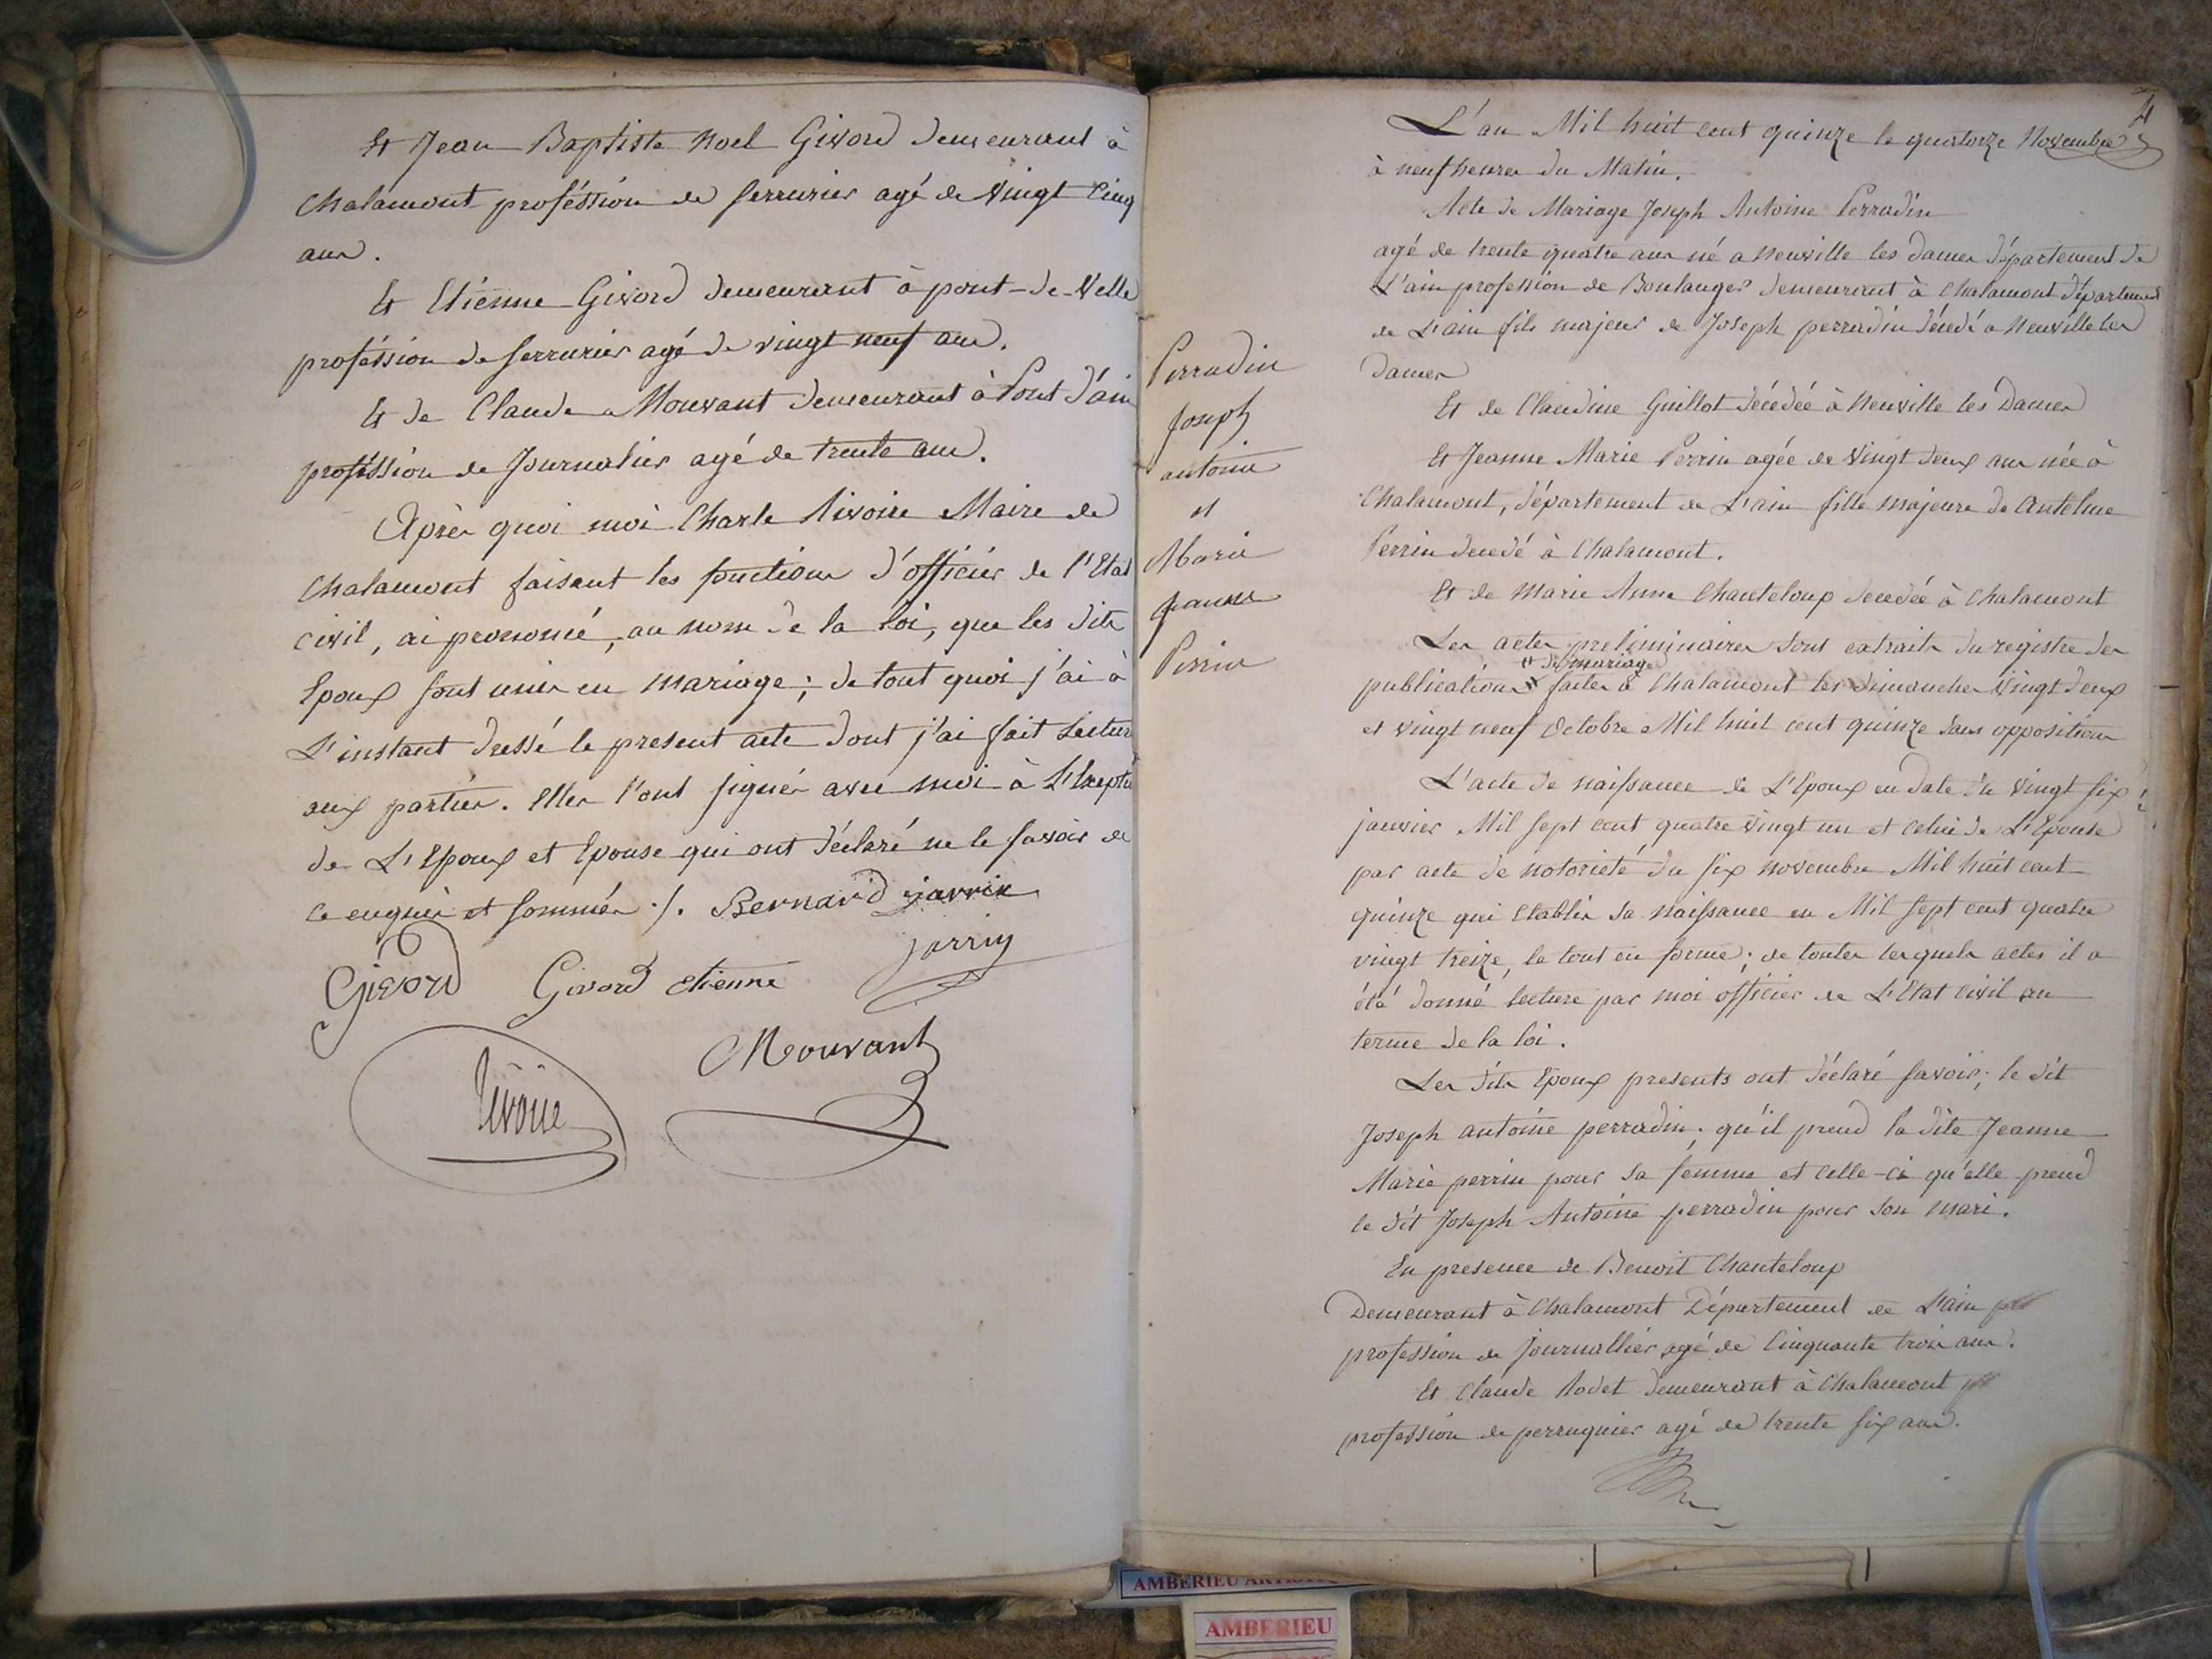 Et Jean Baptiste Noel Givord demeurant à
Chalamont proféssion de serrurier agé de vingt cinq
ans.
Et Etienne Givord demeurant à pont-de-Velle
proféssion de serrurier agé de vingt neuf ans.
Et de Claude Mouvant demeurant à Pont d'ain
proféssion de Journalier agé de trente ans.
Après quoi moi Charle Rivoire Maire de
Chalamont faisant les fonctions d'officier de l'Etat
civil, ai prononcé, au nom de la loi, que les dits
Epoux sont unis en mariage; de tout quoi j'ai à
L'instant dressé le present acte dont j'ai fait Lecture
aux parties. Elles l'ont signés avec moi à L'Exeption
de L'Epoux et Epouse qui ont déclaré ne le savoir de
ce enquis et sommés ./. Bernard jarrin
jarrin
Givord Givord etienne
Mouvant
Rivoire
Perradin
Joseph
antoine
et
Marie
jeanne
Perrin
4
L'an Mil huit cent quinze le quatorze Novembre
à neuf heures du Matin.
Acte de Mariage Joseph Antoine Perradin
agé de trente quatre ans né a Neuville les Dames département de
L'ain profession de Boulanger demeurant à Chalamont département
de L'ain fils majeur de Joseph perradin décédé a Neuville les
Dames
Et de Claudine Guillot décédée à Neuville les Dames
Et Jeanne Marie Perrin agée de vingt deux ans née à
Chalamont, département de L'ain fille majeure de Antelme
Perrin decedé à Chalamont.
Et de Marie Anne Chanteloup decedée à Chalamont
Les actes preliminaires sont extraits du registre des
et de mariage
publications faites à Chalamont les dimanches vingt deux
et vingt neuf Octobre Mil huit cent quinze sans opposition
L'acte de naissance de L'Epoux en date du vingt six
janvier Mil sept cent quatre vingt un et celui de L'Epouse
par acte de notorieté du six novembre Mil huit cent
quinze qui Etablis sa naissance en Mil sept cent quatre
vingt treize, le tout en forme; de toutes lesquels actes il a
été donné lecture par moi officier de L'Etat civil au
terme de la loi.
Les dits Epoux presents ont déclaré savoir; le dit
Joseph antoine perradin; qu'il prend la dite Jeanne
Marie perrin pour sa femme et celle-ci qu'elle prend
le dit Joseph Antoine perradin pour son mari.
En presence de Benoit Chanteloup
Demeurant à Chalamont Département de L'ain
profession de journallier agé de Cinquante trois ans.
Et Claude Rodet demeurant à Chalamont
profession de perruquier agé de trente six ans.
AMBERIEU
AMBERIEU